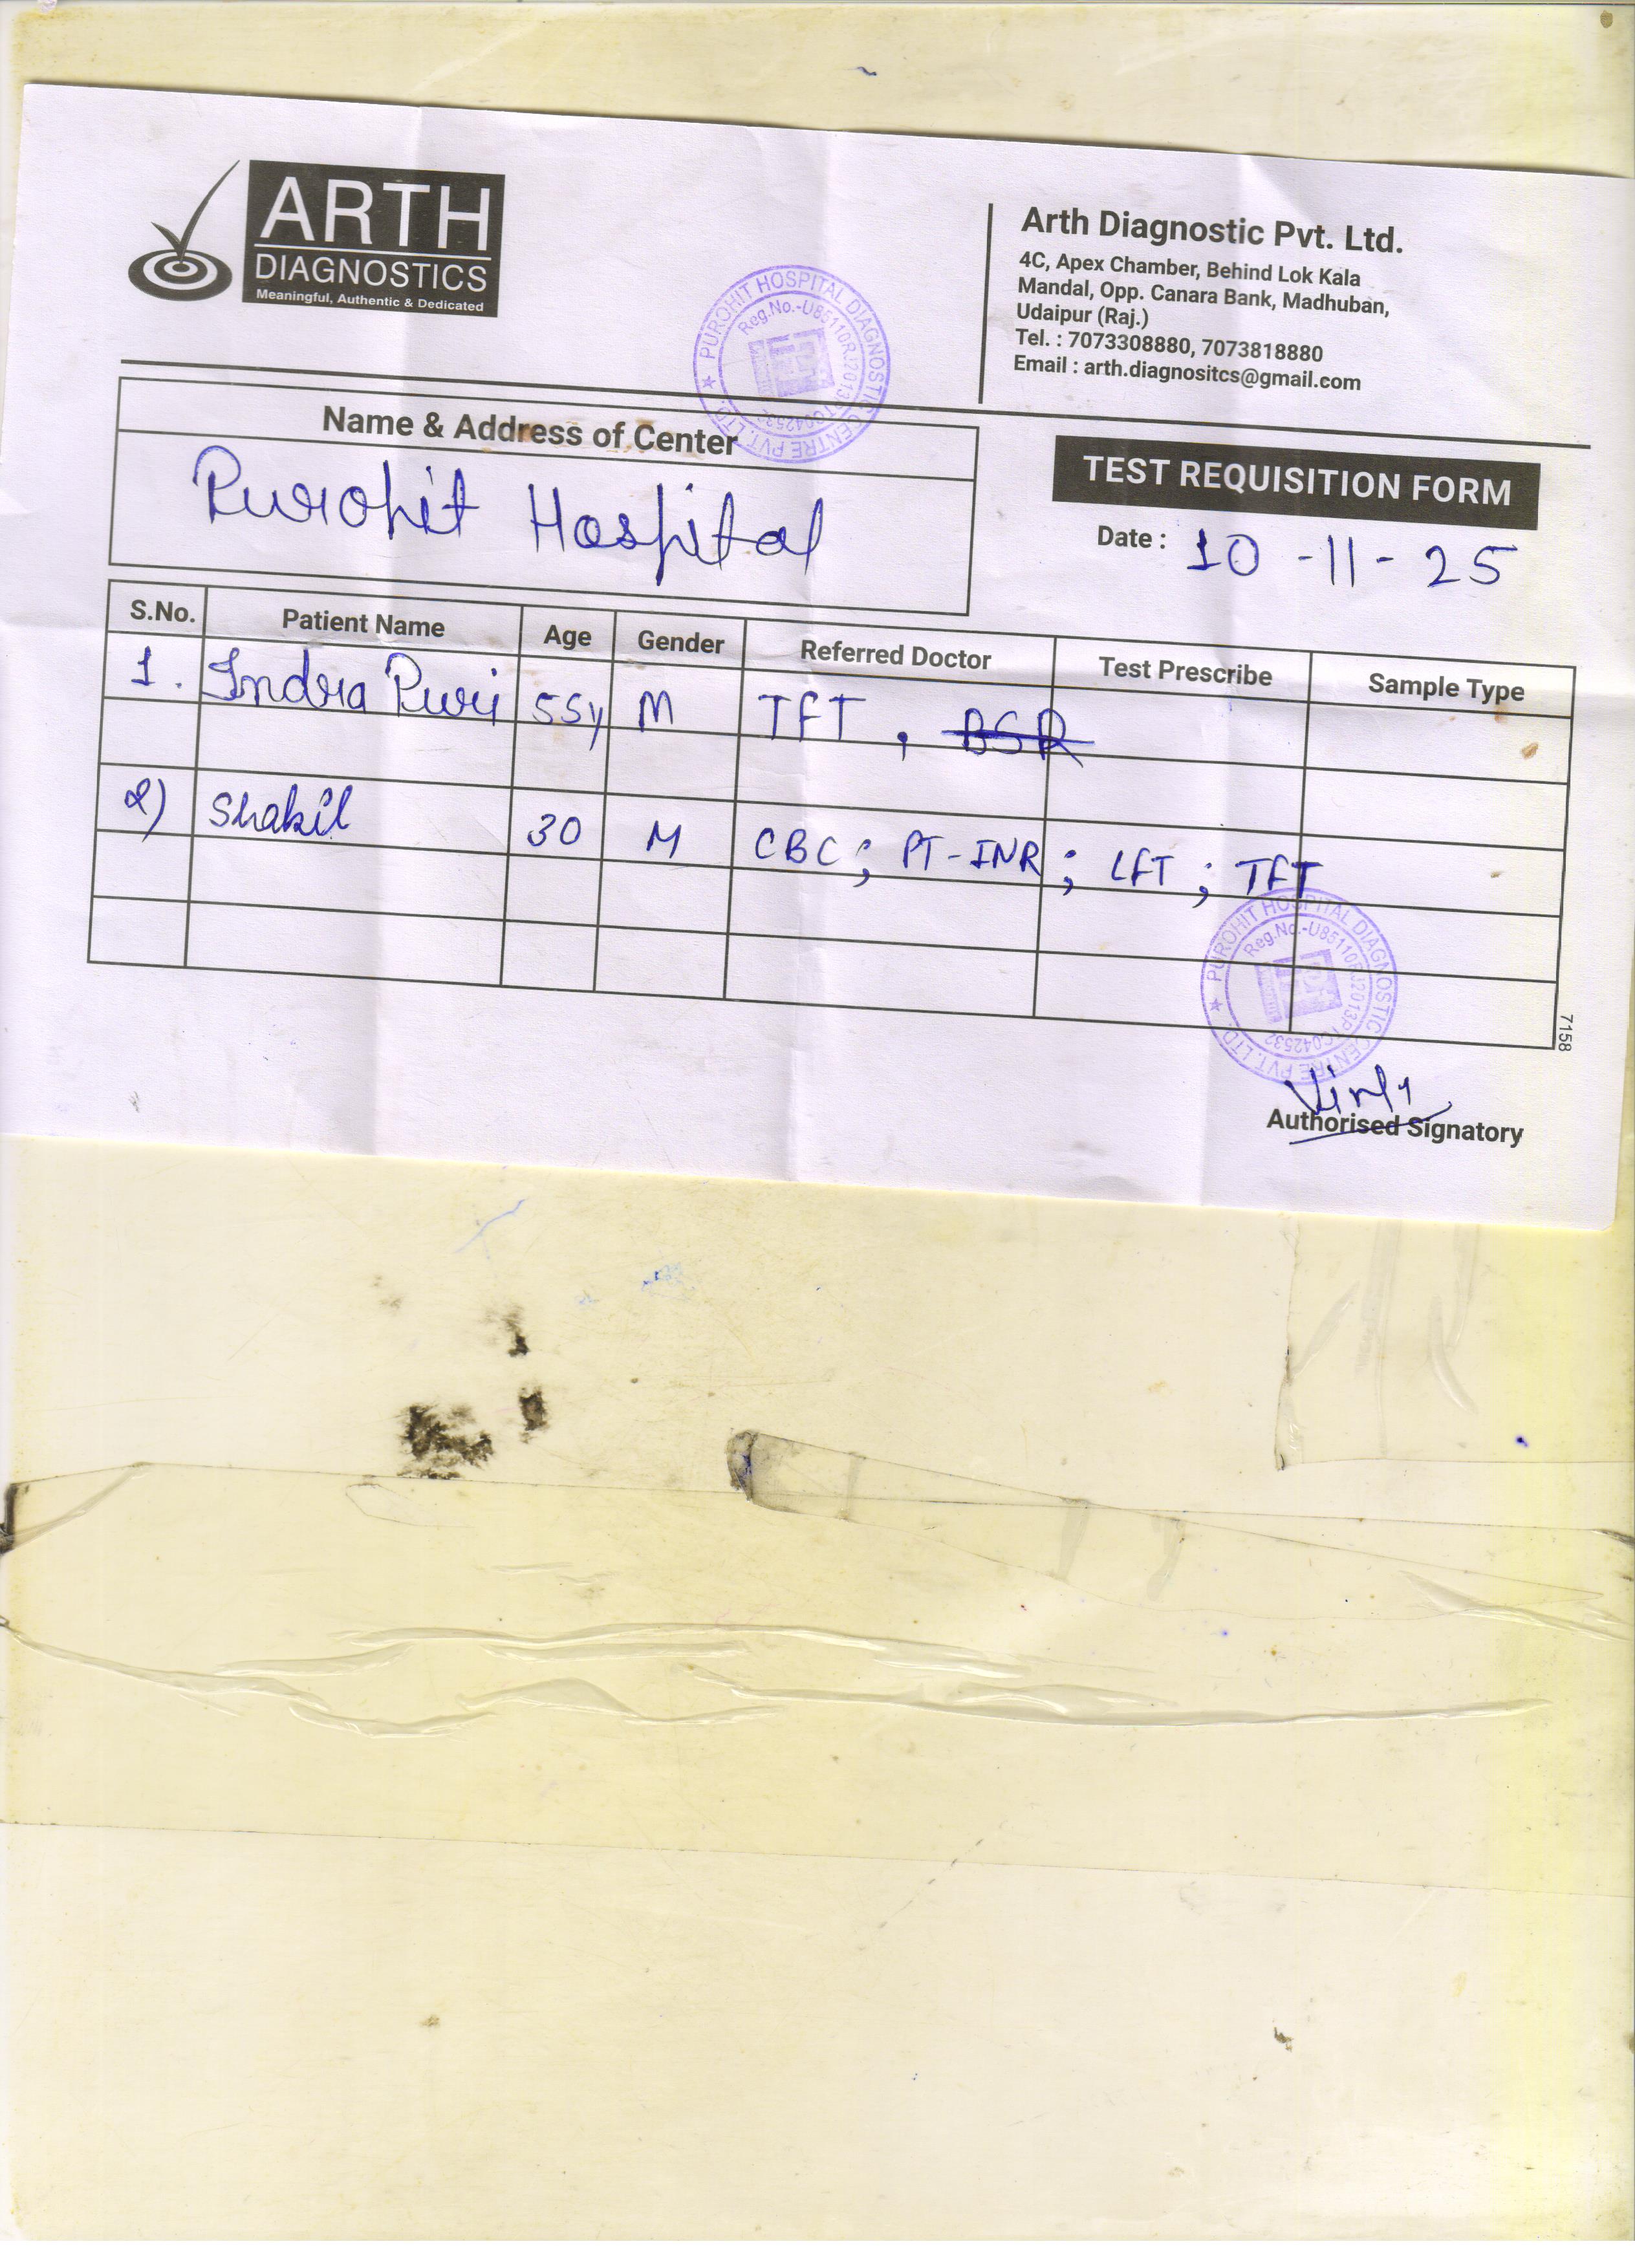 ARTH
DIAGNOSTICS
Meaningful, Authentic & Dedicated
Arth Diagnostic Pvt. Ltd.
4C, Apex Chamber, Behind Lok Kala
Mandal, Opp. Canara Bank, Madhuban,
Udaipur (Raj.)
Tel. : 7073308880, 7073818880
Email : arth.diagnositcs@gmail.com
PUROHIT HOSPITAL DIAGNOSTIC CENTRE PVT. LTD.
Reg.No.-U85110RJ2013PTC042532
Name & Address of Center
Purohit Hospital
TEST REQUISITION FORM
Date : 10-11-25
S.No. Patient Name Age Gender Referred Doctor Test Prescribe Sample Type
1. Indra Puri 55y M TFT, BSR
2) Shakil 30 M CBC; PT-INR; LFT; TFT
PUROHIT HOSPITAL DIAGNOSTIC CENTRE PVT. LTD.
Reg.No.-U85110RJ2013PTC042532
7158
Authorised Signatory